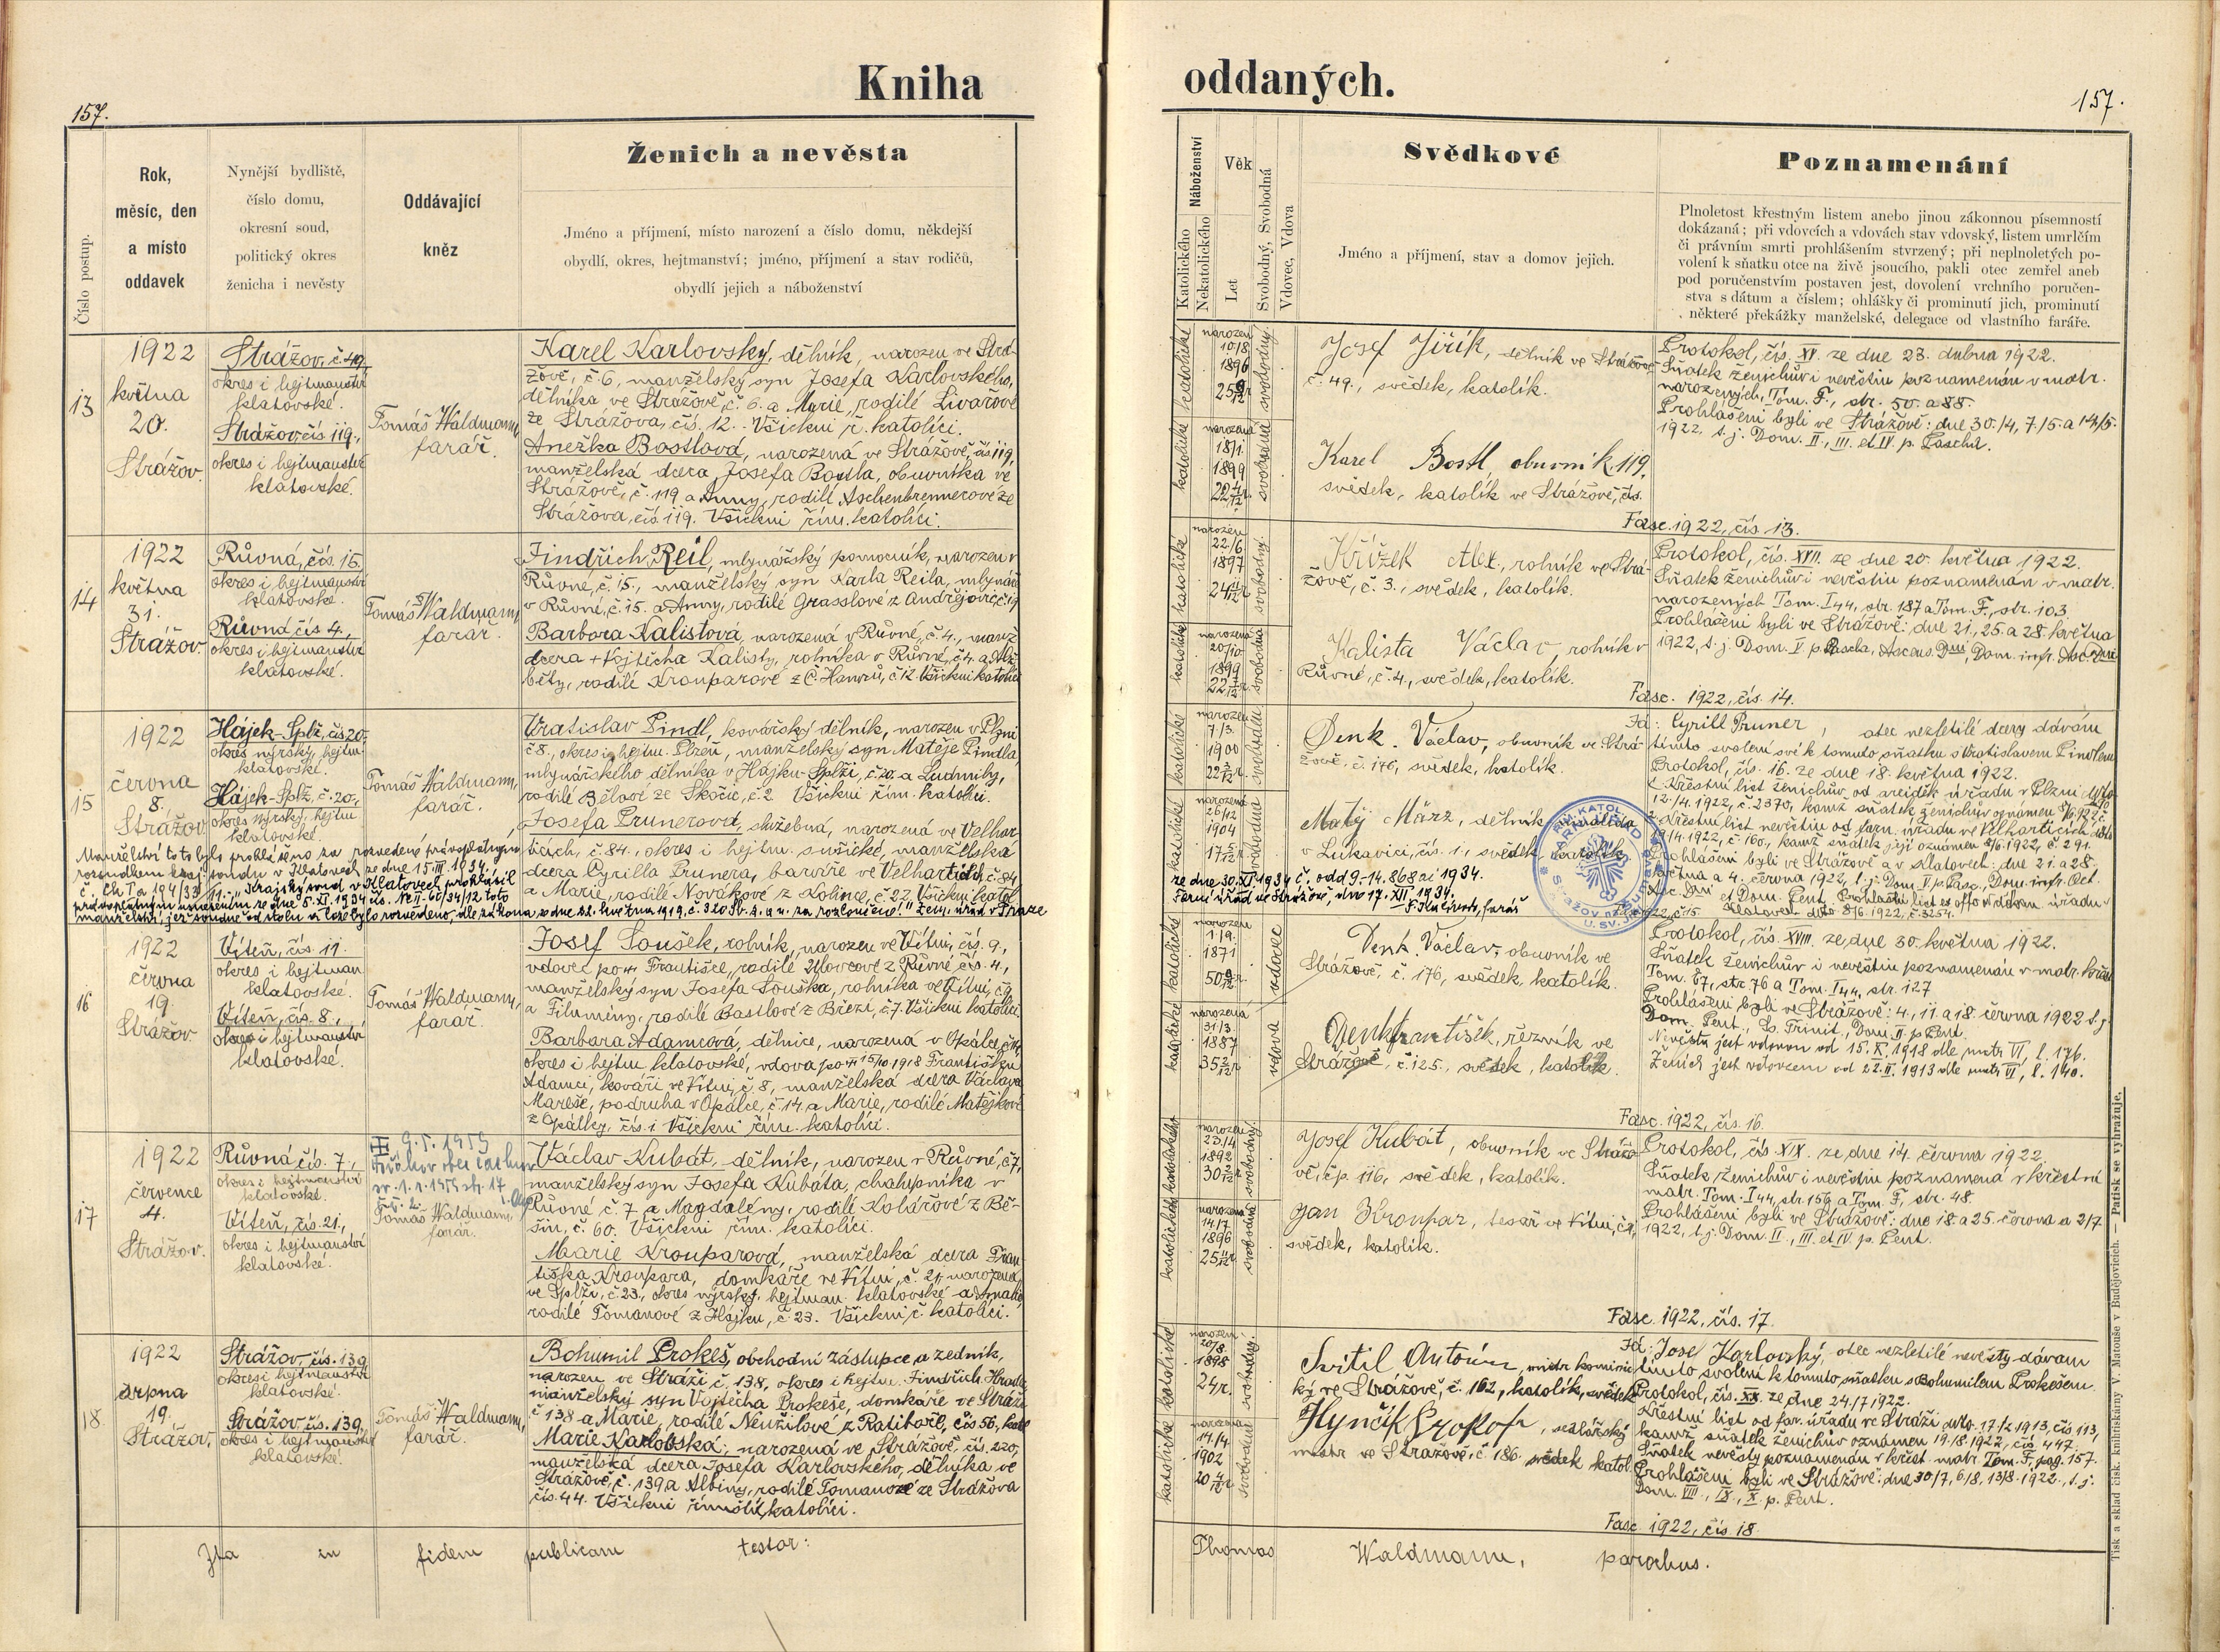 Kniha
oddaných.
157.
157.
Číslo postup.
Rok,
měsíc, den
a místo
oddavek
Nynější bydliště,
číslo domu,
okresní soud,
politický okres
ženicha i nevěsty
Oddávající
kněz
Ženich a nevěsta
Jméno a příjmení, místo narození a číslo domu, někdejší
obydlí, okres, hejtmanství; jméno, příjmení a stav rodičů,
obydlí jejich a náboženství
Náboženství
Katolického
Nekatolického
Věk
Let
Svobodný, Svobodná
Vdovec, Vdova
Svědkové
Jméno a příjmení, stav a domov jejich.
Poznamenání
Plnoletost křestným listem anebo jinou zákonnou písemností
dokázaná; při vdovcích a vdovách stav vdovský, listem umrlčím
či právním smrti prohlášením stvrzený; při neplnoletých po-
volení k sňatku otce na živě jsoucího, pakli otec zemřel aneb
pod poručenstvím postaven jest, dovolení vrchního poručen-
stva s dátum a číslem; ohlášky či prominutí jich, prominutí
některé překážky manželské, delegace od vlastního faráře.
13
1922
května
20.
Strážov.
Strážov, č. 49,
okres i hejtmanství
klatovské.
Strážov čís 119.,
okres i hejtmanství
klatovské.
Tomáš Waldmann,
farář.
Karel Karlovský, dělník, narozen ve Strá-
žově, č. 6, manželský syn Josefa Karlovského,
dělníka ve Strážově, č. 6. a Marie, rodilé Livarové
ze Strážova, čís. 12. Všickni ř. katolíci.
Anežka Bostlová, narozená ve Strážově, čís 119,
manželská dcera Josefa Bostla, obuvníka ve
Strážově, č. 119 a Anny, rodilé Aschenbrennerové ze
Strážova, čís. 119. Všickni řím. katolíci.
katolické
narozen
10/8
1896
25 9/12
svobodný
katolické
narozená
18/1.
1899
22 4/12 r.
svobodná
Josef Jiřík, dělník ve Strážově
č. 49., svědek, katolík.
Karel Bostl, obuvník, 119,
svědek, katolík ve Strážově, čís.
Protokol, čís. XV. ze dne 23. dubna 1922.
Sňatek ženichův i nevěstin poznamenán v matr.
narozených, Tom. F., str. 50. a 88.
Prohlášeni byli ve Strážově: dne 30./4, 7./5. a 14/5.
1922, t. j. Dom. II., III. et IV. p. Pascha.
Fasc. 1922, čís. 13.
14
1922
května
31.
Strážov.
Růvná, čís. 15.
okres i hejtmanství
klatovské.
Růvná čís 4.,
okres i hejtmanství
klatovské.
Tomáš Waldmann,
farář.
Jindřich Reil, mlynářský pomocník, narozen v
Růvné, č. 15., manželský syn Karla Reila, mlynáře
v Růvné, č. 15. a Anny, rodilé Grasslové z Andřejovic, č. 19
Barbora Kalistová, narozená v Růvné, č. 4., manž.
dcera + Vojtěcha Kalisty, rolníka v Růvné, č. 4. a Alž-
běty, rodilé Krouparové z Č. Hamrů, č. 12. Všickni katolíci
katolické
narozen
22./6
1897
24 11/12 r.
svobodný.
katolické
narozená
20/10
1899
22 7/12 r.
svobodná
Křížek Alex, rolník ve Strá-
žově, č. 3., svědek, katolík.
Kalista Václav, rolník v
Růvné, č. 4., svědek, katolík.
Protokol, čís. XVII. ze dne 20. května 1922.
Sňatek ženichův i nevěstin poznamenán v matr.
narozených Tom. I 44, str. 187 a Tom. F., str. 103.
Prohlášeni byli ve Strážově: dne 21., 25. a 28. května
1922, t. j. Dom. V. p. Pascha, Ascens. Dni, Dom. infr. Asc. Dni.
Fasc. 1922, čís. 14.
15
1922
června
8.
Strážov
Hájek-Splž, čís 20.
okres nýrský, hejtm.
klatovské.
Hájek-Splž, č. 20.,
okres nýrský, hejtm.
klatovské.
Tomáš Waldmann,
farář.
Vratislav Pindl, kovářský dělník, narozen v Plzni
č. 8., okres i hejtm. Plzeň, manželský syn Matěje Pindla,
mlynářského dělníka v Hájku-Splži, č. 20. a Ludmily,
rodilé Bělové ze Skočic, č. 2. Všickni řím. katolíci.
Josefa Prunerová, služebná, narozená ve Velhar-
ticích, č. 84., okres i hejtm. sušické, manželská
dcera Cyrilla Prunera, barvíře ve Velharticích, č. 84
a Marie, rodilé Novákové z Kolince, č. 22. Všickni katol.
Manželství toto bylo prohlášeno za rozvedené právoplatným
rozsudkem kraj. soudu v Klatovech ze dne 15. III. 1934
manželství, jež soudně od stolu a lože bylo rozvedeno, dle zákona ze dne 22. května 1919, č. 320 Sb. z. a n. za rozloučené". Zem. úřad v Praze
ze dne 30. XI. 1934 č. odd 9-14.868 ai 1934.
Farní úřad ve Strážově, dne 17. XII. 1934.
katolické
narozen
7/3.
1900
22 3/12 r.
svobodný
katolické
narozená
26/12
1904
17 5/12 r.
svobodná
Denk Václav, obuvník ve Strá-
žově, č. 176, svědek, katolík.
Matěj März, dělník
v Lukavici, čís. 1., svědek, katolík
ŘÍM. KATOL. FARNÍ ÚŘAD
Strážov na Šumavě
U SV. JIŘÍ
Já: Cyrill Pruner, otec nezletilé dcery dávám
tímto svolení své k tomuto sňatku s Vratislavem Pindlem
Protokol, čís. 16. ze dne 18. května 1922.
Křestní list ženichův od arciděk. úřadu v Plzni dto
12./4. 1922, č. 2370, kamž sňatek ženichův oznámen 8/6. 1922
Křestní list nevěstin od farn. úřadu ve Velharticích dto
19/4. 1922, č. 160., kamž sňatek její oznámen 8/6. 1922, č. 291.
Prohlášeni byli ve Strážově a v Klatovech: dne 21. a 28.
května a 4. června 1922, t. j. Dom. V. p. Pasc., Dom. infr. Oct.
Asc. Dni et Dom. Pent. Prohlašní list ex offo od děkan. úřadu v
Klatovech dto 8/6. 1922, č. 3254.
16
1922
června
19.
Strážov.
Víteň, čís. 11.
okres i hejtman.
klatovské.
Víteň, čís. 8.,
okres i hejtmanství
klatovské.
Tomáš Waldmann,
farář.
Josef Soušek, rolník, narozen ve Vítni, čís. 9.,
vdovec po + Františce, rodilé Ullovcové z Růvné, čís. 4.,
manželský syn Josefa Souška, rolníka ve Vítni, č. 9
a Filumeny, rodilé Bastlové z Březí, č. 7. Všickni katolíci
Barbora Adamcová, dělnice, narozená v Opálce, č. 14,
okres i hejtm. klatovské, vdova po + 15/10 1918 Františku
Adamci, kováři ve Vítni, č. 8, manželská dcera Václava
Mareše, podruha v Opálce, č. 14. a Marie, rodilé Matějkové
z Opálky, čís. 1 Všickni řím. katolíci.
katolické
narozen
1./9.
1871
50 9/12 r.
vdovec
katolické
narozená
31/3.
1887
35 2/12 r.
vdova
Denk Václav, obuvník ve
Strážově, č. 176, svědek, katolík.
Denk František, řezník ve
Strážově, č. 125., svědek, katolík.
Protokol, čís. XVIII. ze dne 30. května 1922.
Sňatek ženichův i nevěstin poznamenán v matr. křest
Tom. 67, str. 76 a Tom. I 44, str. 127
Prohlášeni byli ve Strážově: 4., 11. a 18. června 1922 t. j.
Dom. Pent., Ss. Trinit., Dom. II. p. Pent.
Nevěsta jest vdovou od 15. X. 1918 dle matr. VI, l. 176.
Ženich jest vdovcem od 22. II. 1913 dle matr. VI, l. 140.
Fasc. 1922, čís. 16.
17
1922
července
4.
Strážov.
Růvná čís. 7.,
okres i hejtmanství
klatovské.
Víteň, čís. 21.,
okres i hejtmanství
klatovské.
9. 5. 1959
Tomáš Waldmann,
farář.
Václav Kubát, dělník, narozen v Růvné, č. 7,
manželský syn Josefa Kubáta, chalupníka v
Růvné č. 7 a Magdalény, rodilé Kolářové z Bě-
šin, č. 60. Všickni řím. katolíci.
Marie Krouparová, manželská dcera Fran-
tiška Kroupara, domkáře ve Vítni, č. 21, narozená
ve Splži, č. 23., okres nýrský, hejtman. klatovské a Amalie,
rodilé Tomanové z Hájku, č. 23. Všickni ř. katolíci.
katolického
narozen
23./4
1892
30 2/12 r.
svobodný.
katolického
narozená
14./7
1896
25 11/12 r.
svobodná
Josef Kubát, obuvník ve Strážo-
vě, čp. 116, svědek, katolík.
Jan Kroupar, tesař ve Vítni, č. 21,
svědek, katolík.
Protokol, čís XIX. ze dne 14. června 1922.
Sňatek ženichův i nevěstin poznamená v křestní
matr. Tom. I 44, str. 156 a Tom. F, str. 48.
Prohlášeni byli ve Strážově: dne 18. a 25. června a 2/7
1922, t. j. Dom. II., III. et IV. p. Pent.
Fasc. 1922, čís. 17.
18.
1922
srpna
19.
Strážov,
Strážov, čís. 139,
okres i hejtmanství
klatovské.
Strážov čís. 139,
okres i hejtmanství
klatovské.
Tomáš Waldmann,
farář.
Bohumil Prokeš, obchodní zástupce a zedník,
narozen ve Stráži č. 138, okres i hejtm. Jindřich. Hradec
manželský syn Vojtěcha Prokeše, domkáře ve Stráži
č 138 a Marie, rodilé Neužilové z Ratiboře, čís 56, kat.
Marie Karlovská, narozená ve Strážově, čís. 220,
manželská dcera Josefa Karlovského, dělníka ve
Strážově, č. 139 a Albiny, rodilé Tomanové ze Strážova
čís. 44. Všickni římští katolíci.
katolické
narozen
20/8.
1898
24 r.
svobodný.
katolické
narozená
14./4
1902
20 4/12 r.
svobodná
Svitil Antonín, mistr kominic-
ký ve Strážově, č. 162, katolík, svědek
Hynčík Prokop, sedlářský
mistr ve Strážově, č. 186. svědek katol.
Já: Josef Karlovský, otec nezletilé nevěsty dávám
tímto svolení k tomuto sňatku s Bohumilem Prokešem.
Protokol, čís. XX. ze dne 24./7 1922.
Křestní list od far. úřadu ve Stráži dto. 17./2 1913, čís. 113,
kamž sňatek ženichův oznámen 19./8. 1922, čís. 447.
Sňatek nevěsty poznamenán v křest. matr. Tom. F, pag. 157.
Prohlášeni byli ve Strážově: dne 30/7, 6./8, 13/8. 1922., t. j.
Dom. VIII., IX., X. p. Pent.
Fasc. 1922, čís. 18.
Ita in fidem publicam testor:
Thomas Waldmann, parochus.
Tisk a sklad čísk. knihtiskárny V. Matouše v Budějovicích. Patisk se vyhražuje.